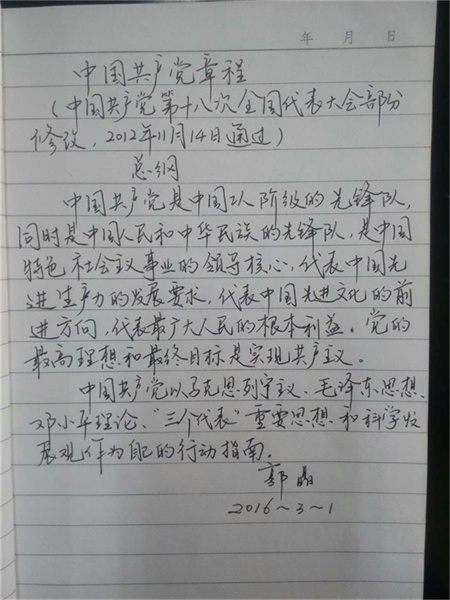 年 月 日
中国共产党章程
(中国共产党第十八次全国代表大会部份
修改,2012年11月14日通过)
总纲
中国共产党是中国工人阶级的先锋队,
同时是中国人民和中华民族的先锋队,是中国
特色社会主义事业的领导核心,代表中国先
进生产力的发展要求,代表中国先进文化的前
进方向,代表最广大人民的根本利益。党的
最高理想和最终目标是实现共产主义。
中国共产党以马克思列宁主义、毛泽东思想、
邓小平理论、“三个代表”重要思想和科学发
展观作为自己的行动指南。
郭晶
2016~3~1